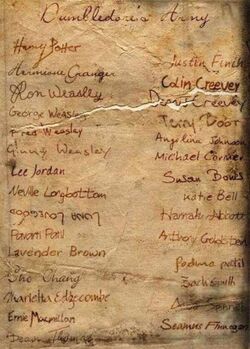 Dumbledore's Army
Harry Potter
Hermione Granger
Ron Weasley
George Weasley
Fred Weasley
Ginny Weasley
Lee Jordan
Neville Longbottom
Luna Lovegood
Parvati Patil
Lavender Brown
Cho Chang
Marietta Edgecombe
Ernie Macmillan
Dean Thomas
Justin Finch
Colin Creevey
Dennis Creevey
Terry Boot
Angelina Johnson
Michael Corner
Susan Bones
Katie Bell
Hannah Abbott
Anthony Goldstein
Padma patil
Zach Smith
Seamus Finnigan